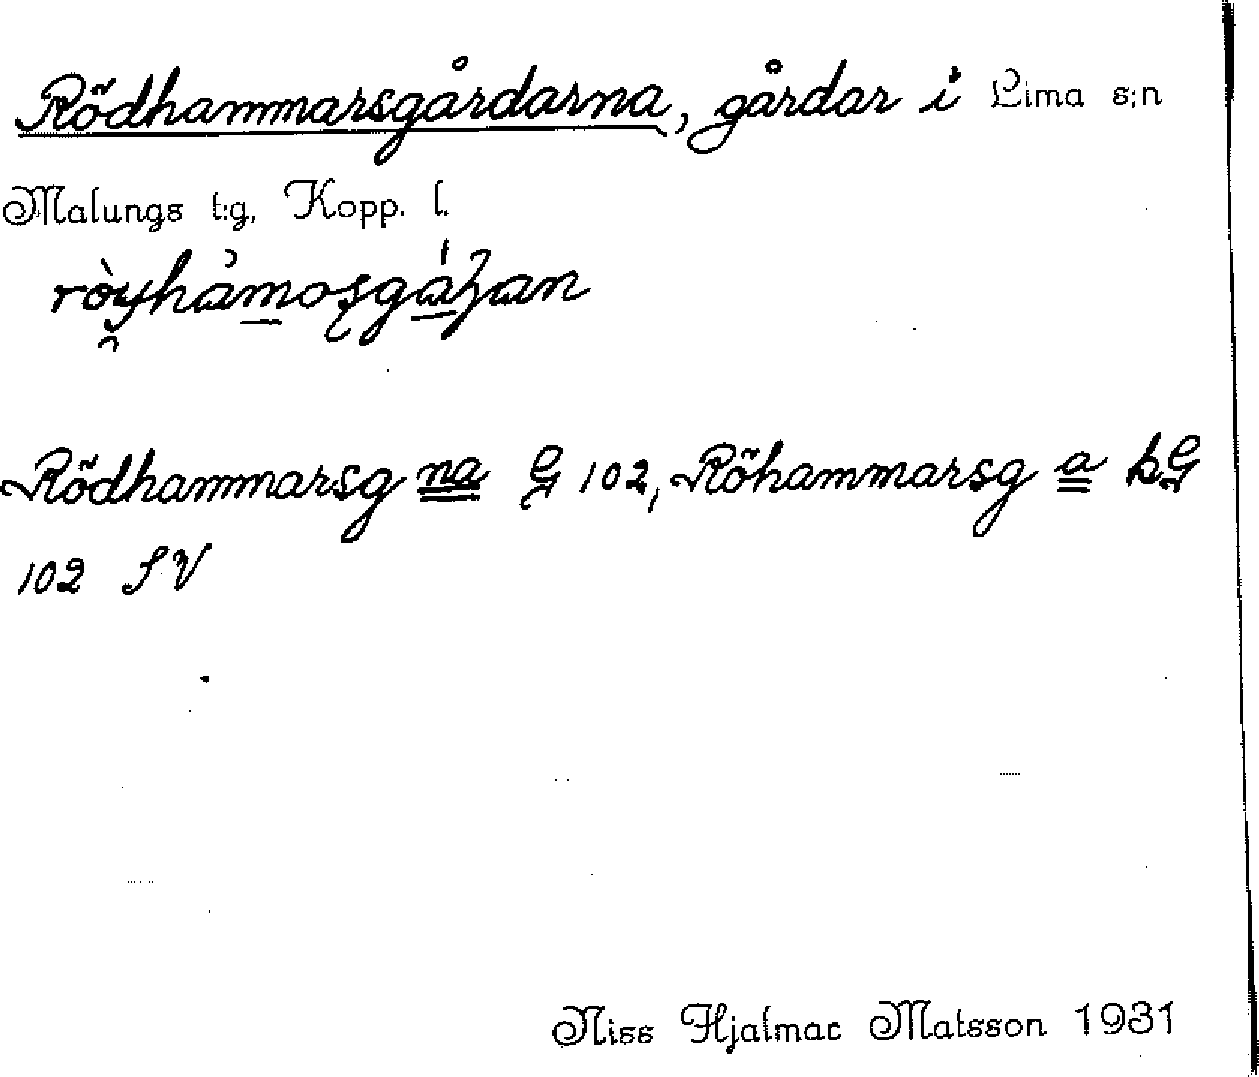 Rödhammarsgårdarna, gårdar i Lima s:n
Malungs t:g, Kopp. l.
Rödhammarsg na G 102, Röhammarsg a bG
102 SV
Niss Hjalmar Matsson 1931